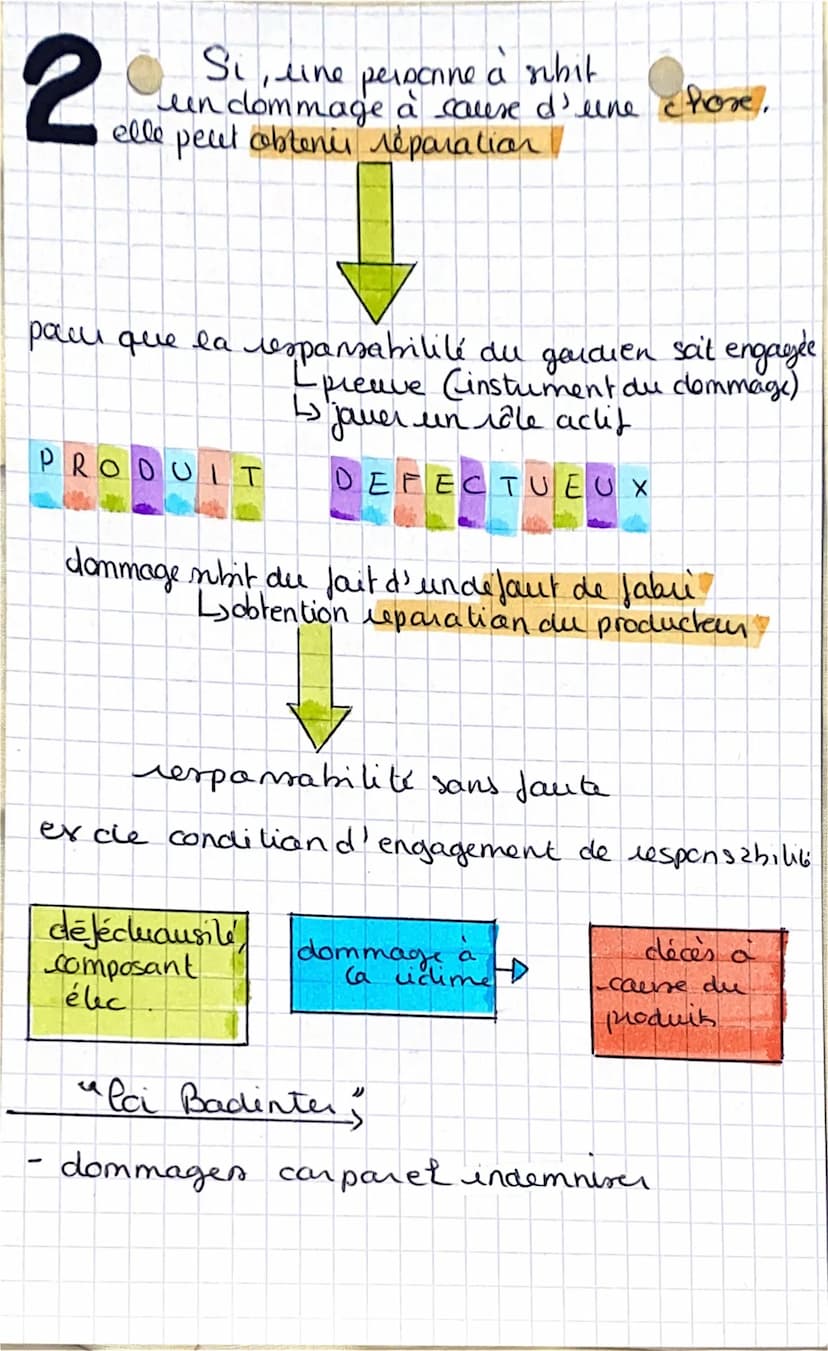 2
Si, une personne à subit
un dommage à cause d'une chose.
elle peut obtenir réparation
pour que la responsabilité du gardien soit engagée
↳ preuve (instument du dommage)
↳ jouer un rôle actif
PRODUIT DEFECTUEUX
dommage subit du fait d'un défaut de fabri
↳ obtention reparation du producteur
responsabilité sans faute
ex de condition d'engagement de responsabilité
déféctuousité,
composant
élec.
dommage à
la victime
décès à
cause du
produit
"loi Badinter"
- dommages corporel indemniser